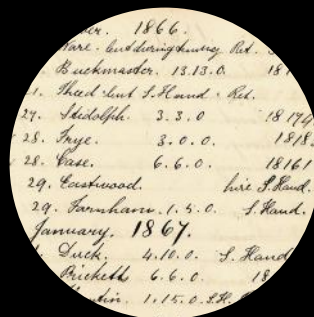 er. 1866.
Ware. lent during [hiring] Ret.
Buckmaster. 13.13.0. 181
1. Sheed lent S. Hand. Ret.
27. Stidolph. 3.3.0 18179
28. Frye. 3.0.0. 1818
28. Case. 6.6.0. 18161
29. Eastwood. hire S. Hand.
29. Farnham. 1.5.0. S. Hand.
January. 1867.
Duck. 4.10.0. S. Hand
Prickett 6.6.0. 18
tin. 1.15.0. S.H.